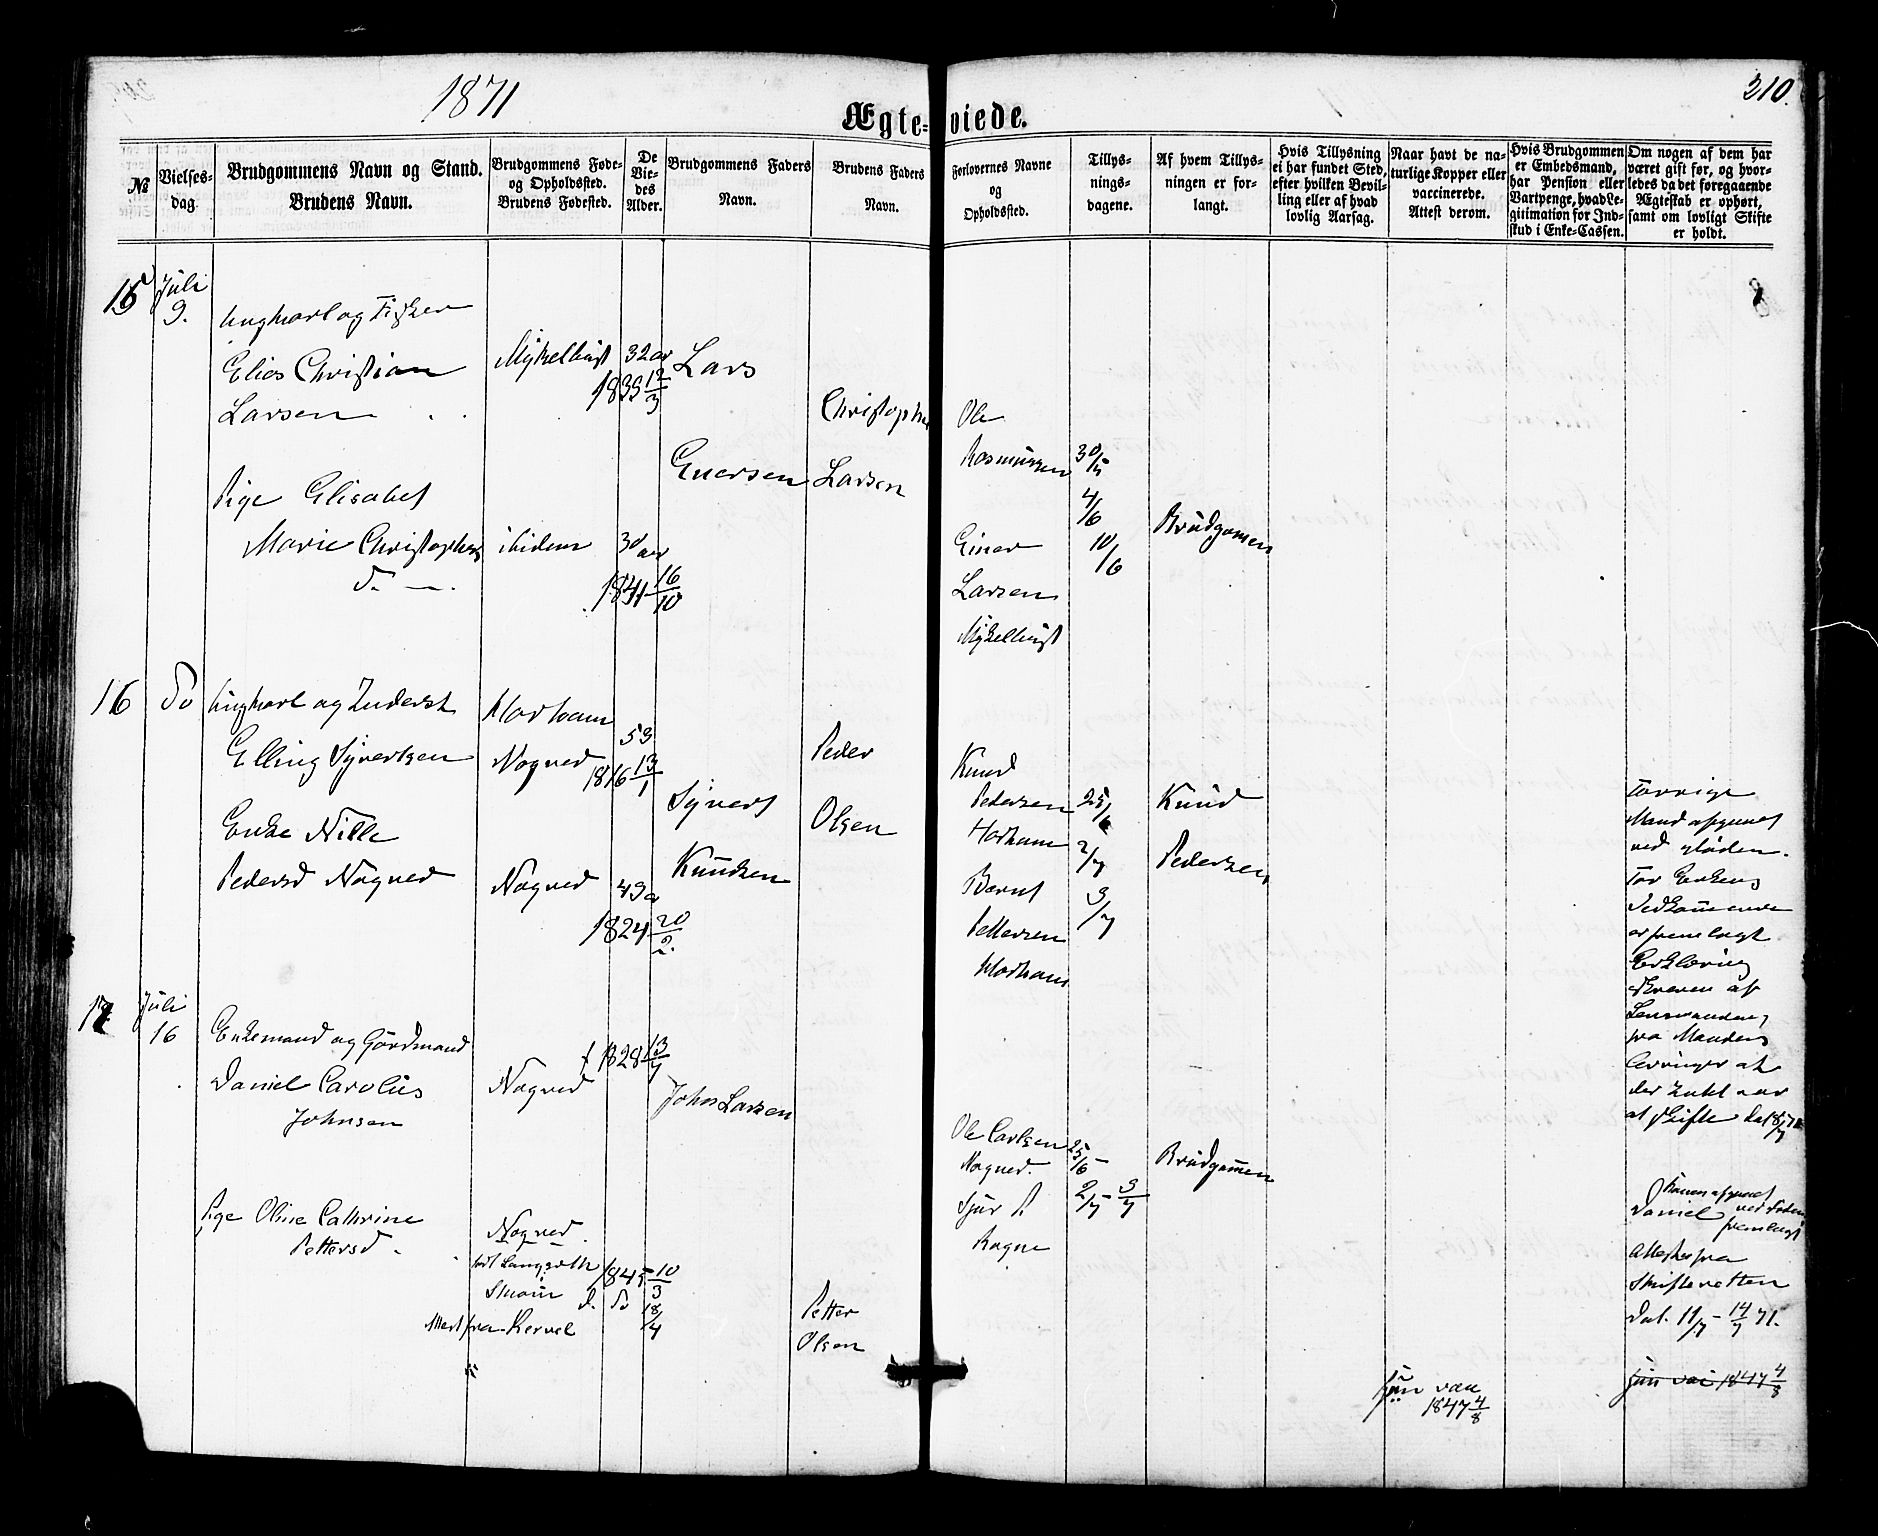 1871
210.
Ægte-viede.
№
Vielses-
dag.
Brudgommens Navn og Stand.
Brudens Navn.
Brudgommens Føde-
og Opholdssted.
Brudens Fødested.
De
Vie-
des
Alder.
Brudgommens Faders
Navn.
Brudens Faders
Navn.
Forlovernes Navne
og
Opholdssted.
Tillys-
nings-
dagene.
Af hvem Tillys-
ningen er for-
langt.
Hvis Tillysning
ei har fundet Sted,
efter hvilken Bevil-
ling eller af hvad
lovlig Aarsag.
Naar havt de na-
turlige Kopper eller
vaccinerede.
Attest derom.
Hvis Brudgommen
er Embedsmand,
har Pension eller
Vartpenge, hvad Le-
gitimation for Ind-
skud i Enke-Cassen.
Om nogen af dem har
været gift før, og hvor-
ledes da det foregaaende
Ægteskab er ophørt,
samt om lovligt Skifte
er holdt.
15
Juli
9.
Ungkarl og Fisker
Elias Christian
Larsen
Myklebust
32 aar
1839 12/3
Lars
Eversen
Christopher
Larsen
Pige Elisabet
Marie Christophers
d.
ibidem
30 aar
1841 16/10
Ole
Rasmussen
Einar
Larsen
Myklebust
30/5
4/6
10/6
Brudgomen
16
Do
Ungkarl og Inderst
Elling Syvertsen
Enke Nille
Pedersd Nogved
Nogved
Nogved
53
1816 13/1
49 a
1824 20/2.
Syvert
Knudsen
Peder
Olsen
Knud
Pedersen
Bernt
Pettersen
25/6
2/7
9/7
Knud
Pedersen
Forrige
Mand afgaaet
ved Døden.
For Enkens
Vedkommende
er fremlagt
Erklæring
skreven af
Lensmanden
fra Mandens
Arvinger at
der intet var
at skifte
17
Juli
16
Enkemand og Gardmand
Daniel Carolus
Johnsen
Nogved
f 1828 13/7
John Larsen
Pige Oline Cathrine
Pettersd.
Nogved
1845 10/3
d. Do
18/4
Petter
Olsen
Ole Carlsen
Nogved.
Sjur P
Rogne
25/6 -
2/7 - 9/7
Brudgomen
Konen afgaaet
ved Døden
Daniel fremlagt
Attest fra
Skifteretten
Dat. 11/7 - 14/7 71.
1847 4/8
1847 4/8